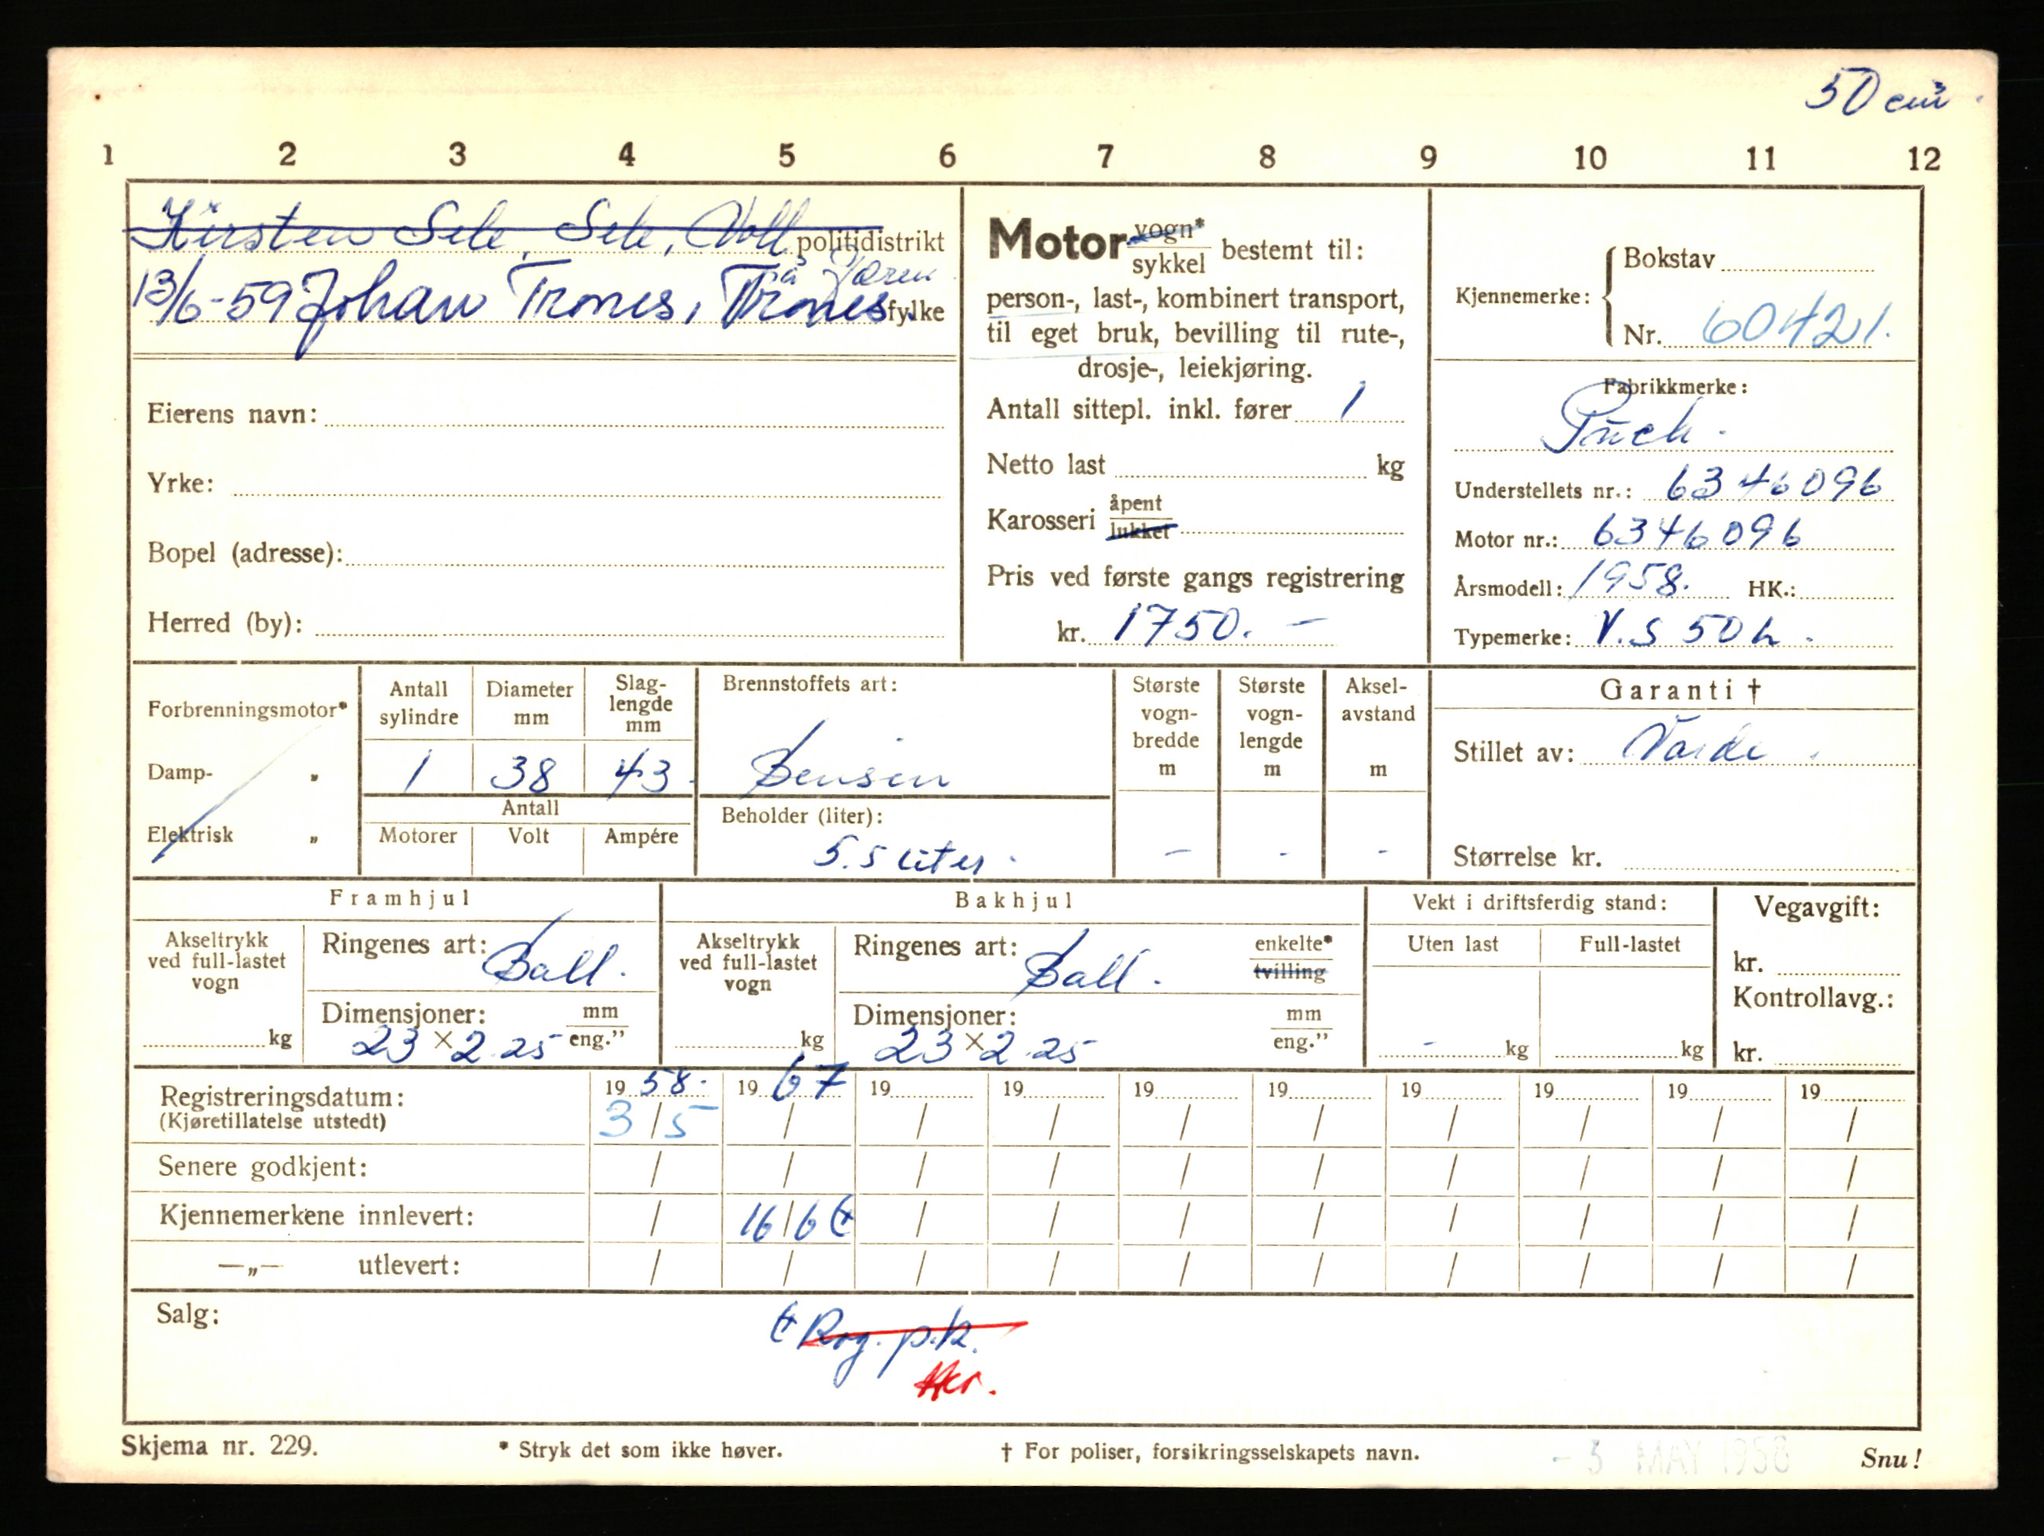 50 cm³
1 2 3 4 5 6 7 8 9 10 11 12
Kirsten Sele, Sele, Voll politidistrikt
på Jæren
13/6-59 Johan Trones, Trones. fylke
Eierens navn:
Yrke:
Bopel (adresse):
Herred (by):
Motor vogn*
sykkel bestemt til:
person-, last-, kombinert transport,
til eget bruk, bevilling til rute-,
drosje-, leiekjøring.
Antall sittepl. inkl. fører 1
Netto last kg
Karosseri åpent
lukket
Pris ved første gangs registrering
kr. 1750. -
Kjennemerke: Bokstav
Nr. 60421.
Fabrikkmerke:
Puch.
Understellets nr.: 6346096
Motor nr.: 6346096
Årsmodell: 1958. HK.:
Typemerke: V.S 50 L.
Forbrenningsmotor*
Damp- „
Elektrisk „
Antall sylindre
1
Diameter mm
38
Slag-lengde mm
43.
Antall
Motorer Volt Ampére
Brennstoffets art:
Bensin
Beholder (liter):
5.5 liter.
Største vogn-bredde m
-
Største vogn-lengde m
-
Aksel-avstand m
-
Garanti †
Stillet av: Varde.
Størrelse kr.
Framhjul
Akseltrykk ved full-lastet vogn
kg
Ringenes art: Ball.
Dimensjoner: mm
23 × 2.25 eng."
Bakhjul
Akseltrykk ved full-lastet vogn
kg
Ringenes art: Ball. enkelte*
tvilling
Dimensjoner: mm
23 × 2.25 eng."
Vekt i driftsferdig stand:
Uten last Full-lastet
- kg kg
Vegavgift:
kr.
Kontrollavg.:
kr.
Registreringsdatum: 19 58. 19 67 19 19 19 19 19 19 19 19
(Kjøretillatelse utstedt) 3/5 / / / / / / / / /
Senere godkjent: / / / / / / / / / /
Kjennemerkene innlevert: / 16/6 / / / / / / / /
—„— utlevert: / / / / / / / / / /
Salg:
Rog. p.k.
Skjema nr. 229. * Stryk det som ikke høver. † For poliser, forsikringsselskapets navn. - 3 MAY 1958 Snu!